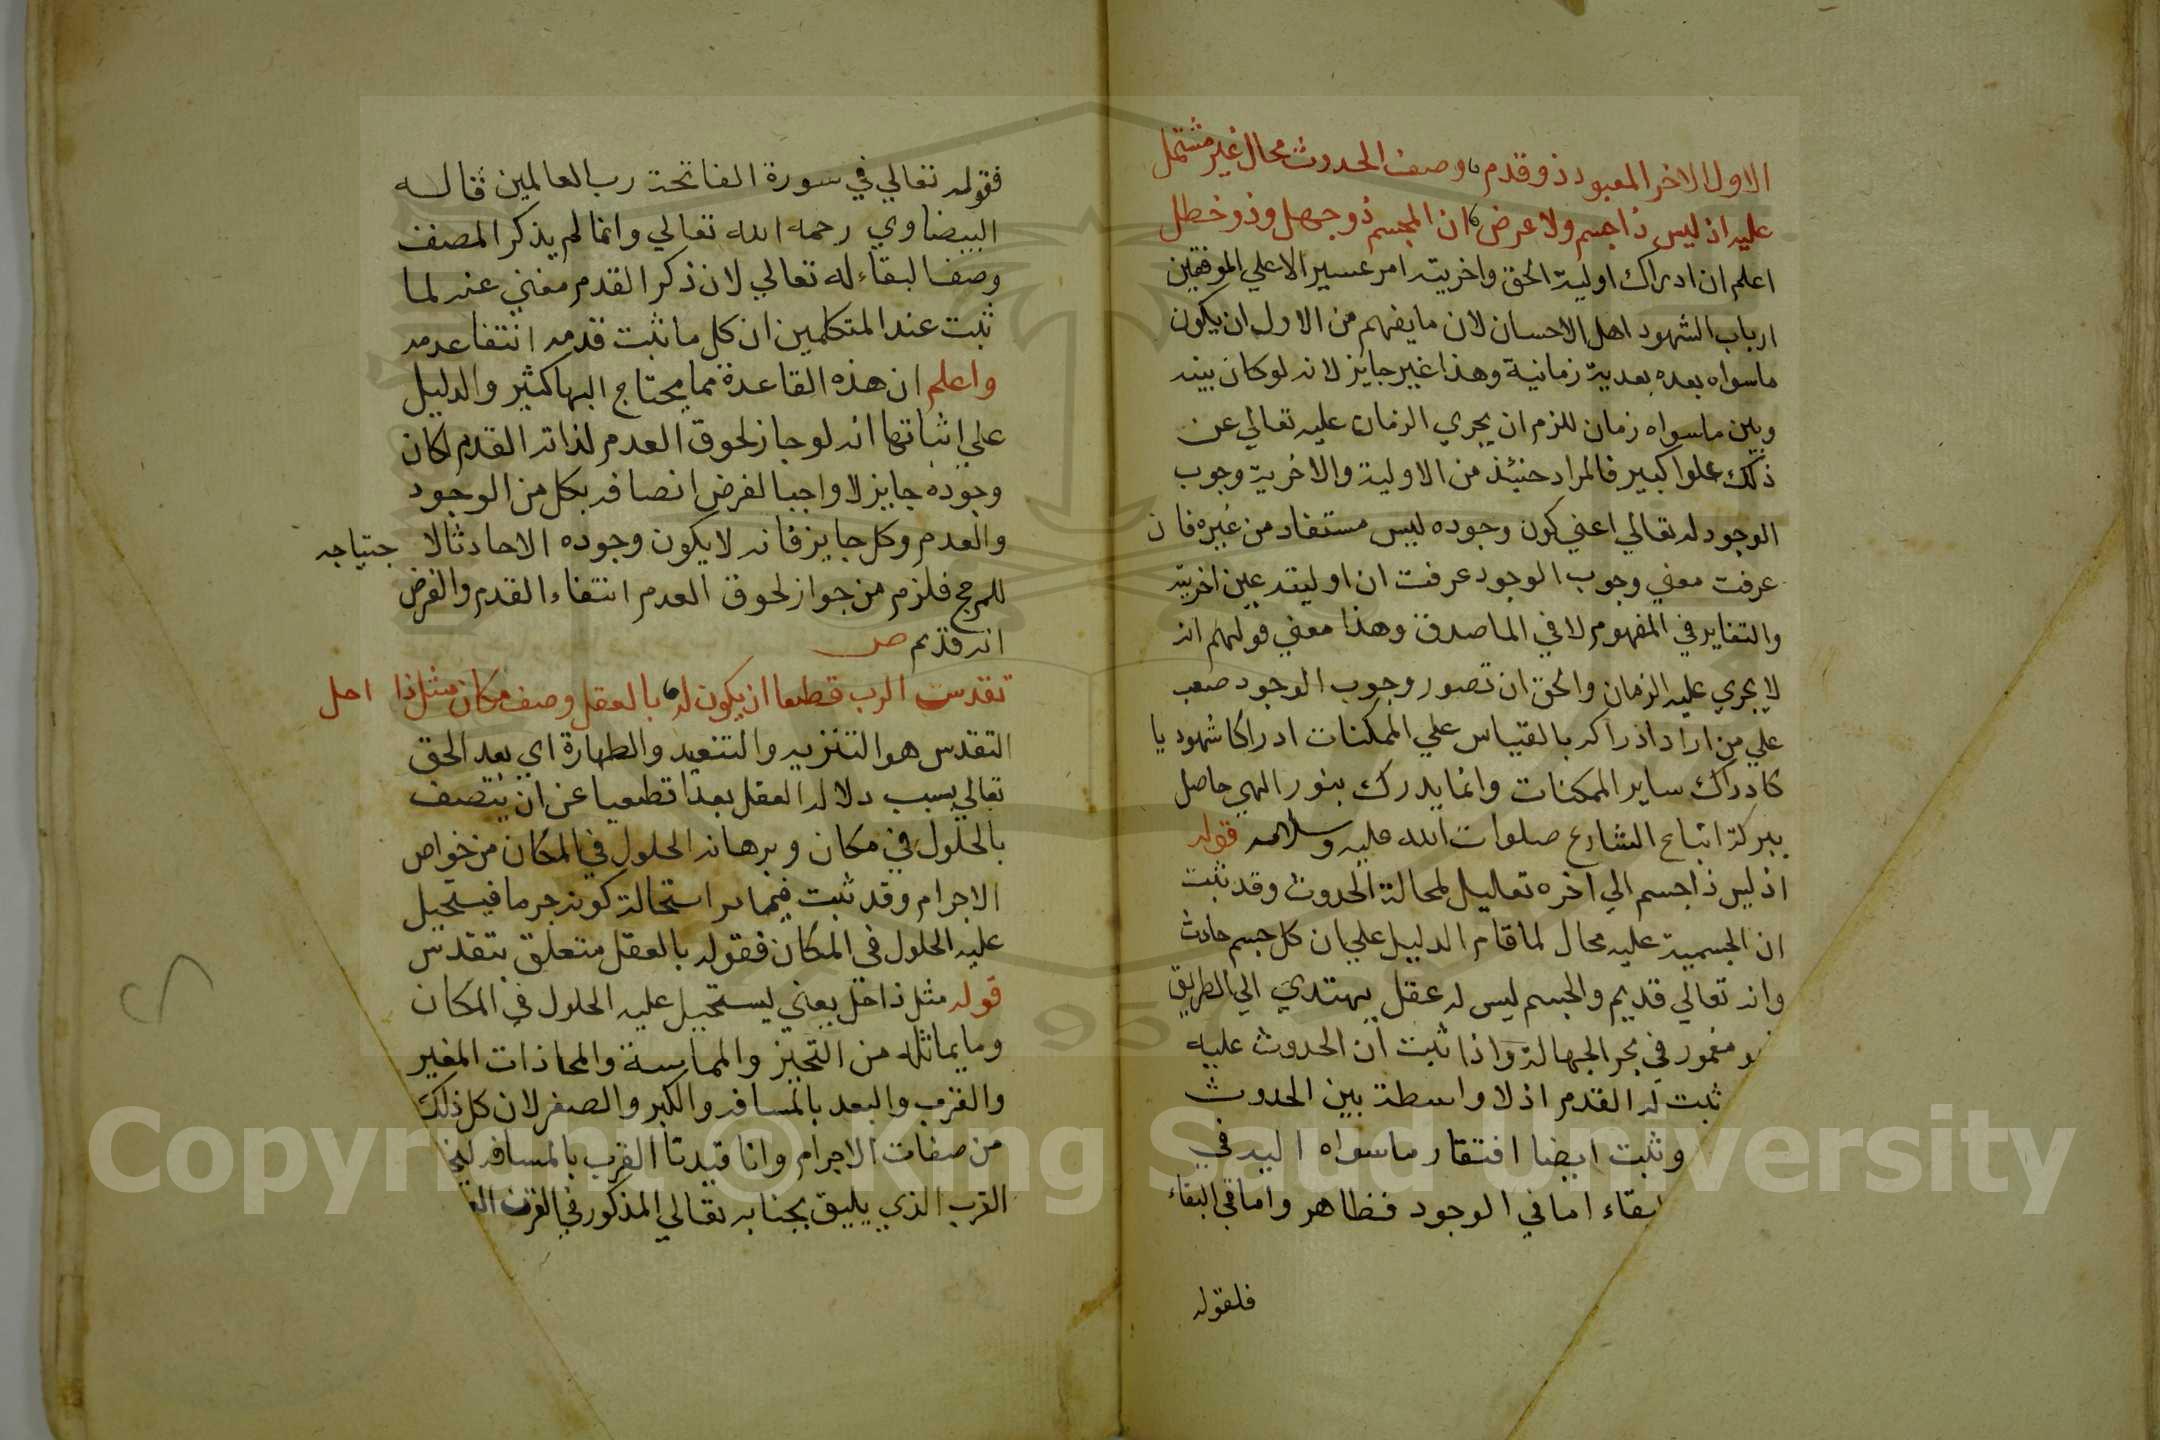 الاول الاخر المعبود ذو قدم وصف الحدوث محال غير مشتمل
عليه اذ ليس ذا جسم ولا عرض ان المجسم ذو جهل وذو خطل
اعلم ان ادراك اولية الحق واخريته امر عسير الا علي الموفقين
ارباب الشهود اهل الاحسان لان ما يفهم من الاول ان يكون
ماسواه بعده بعدية زمانية وهذا غير جايز لانه لو كان بينه
وبين ماسواه زمان للزم ان يجري الزمان عليه تعالي عن
ذلك علوا كبير فالمراد حنئذ من الاولية والاخرية وجوب
الوجود له تعالي اعني كون وجوده ليس مستفاد من غيره فان
عرفت معني وجوب الوجود عرفت ان اوليته عين اخريته
والتغاير في المفهوم لا في الماصدق وهذا معني قولهم انه
لا يجري عليه الزمان والحق ان تصور وجوب الوجود صعب
علي من اراد ادراكه بالقياس علي الممكنات ادراكا شهوديا
كادراك ساير الممكنات وانما يدرك بنور الهي حاصل
ببركة اتباع الشارع صلوات الله عليه وسلامه قوله
اذ ليس ذا جسم الي اخره تعليل لمحالة الحدوث وقد ثبت
ان الجسمية عليه محال لما قام الدليل علي ان كل جسم حادث
وانه تعالي قديم والجسم ليس له عقل يهتدي الي الطريق
مغمور في بحر الجهالة واذا ثبت ان الحدوث عليه
ثبت له القدم اذ لا واسطة بين الحدوث
وثبت ايضا افتقار ماسواه اليه في
امافي الوجود فظاهر واما في البقاء
فلقوله
فقوله تعالي في سورة الفاتحة رب العالمين قاله
البيضاوي رحمه الله تعالي وانما لم يذكر المصنف
وصف البقاء له تعالي لان ذكر القدم مغني عنه لما
ثبت عند المتكلمين ان كل ما ثبت قدمه انتفا عدمه
واعلم ان هذه القاعدة مما يحتاج اليها كثير والدليل
علي اثباتها انه لو جاز لحوق العدم لذاته القدم لكان
وجوده جايز لا واجبا لفرض اتصافه بكل من الوجود
والعدم وكل جايز فانه لا يكون وجوده الا حادثا لاحتياجه
للمرجح فلزم من جواز لحوق العدم انتفاء القدم والفرض
انه قديم ص
تقدس الرب قطعا ان يكون له بالعقل وصف مكان مثل ذا احل
التقدس هو التنزيه والتبعيد والطهارة اي بعد الحق
تعالي بسبب دلالة العقل بعدا قطعيا عن ان يتصف
بالحلول في مكان وبرهانه الحلول في المكان من خواص
الاجرام وقد ثبت فيما مر استحالة كونه جرما فيستحيل
عليه الحلول في المكان فقوله بالعقل متعلق بتقدس
قوله مثل ذا احل يعني يستحيل عليه الحلول في المكان
وما يماثله من التحيز والمماسة والمحاذات المغير
والقرب والبعد بالمسافه والكبر والصغر لان كل ذلك
من صفات الاجرام وانا قيدنا القرب بالمسافه
القرب الذي يليق بجنابه تعالي المذكور في القران
Copyright © King Saud University